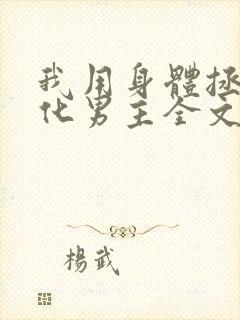 我用身體拯
化男主全文
楊武